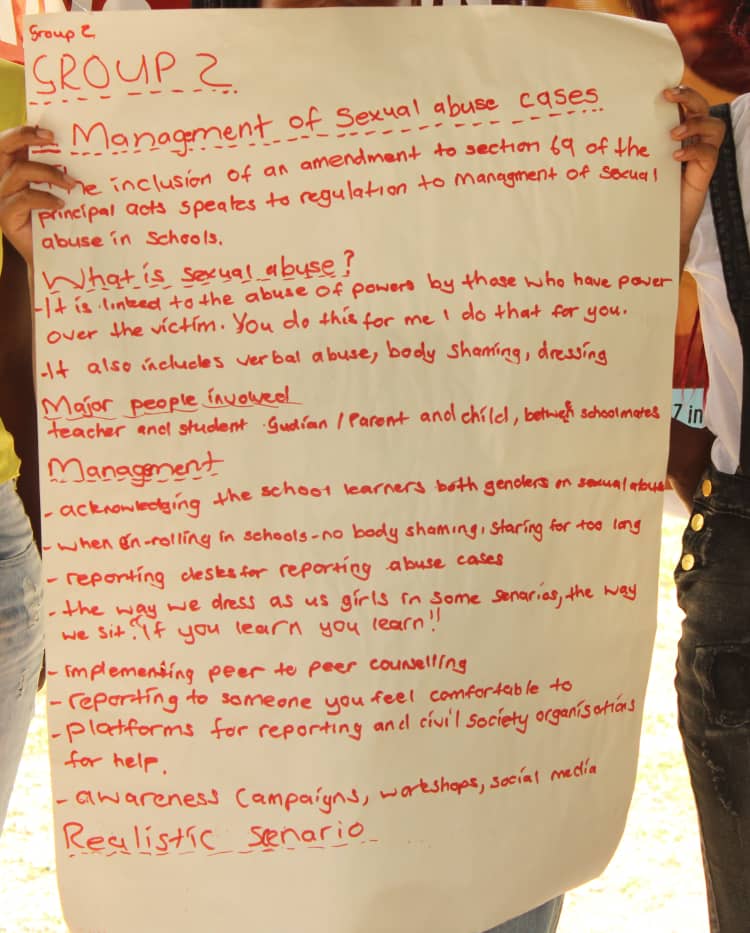 Group 2
GROUP 2
= Management of sexual abuse cases
The inclusion of an amendment to section 69 of the
principal acts speaks to regulation to managment of sexual
abuse in schools.
What is sexual abuse?
-It is linked to the abuse of powers by those who have power
over the victim. You do this for me I do that for you.
-It also includes verbal abuse, body shaming, dressing
Major people invowed
teacher and student Gudian / Parent and child, betwen schoolmates
7 in
Management
- acknowledging the school learners both genders on sexual abuse
- when en-rolling in schools - no body shaming, staring for too long
- reporting desks for reporting abuse cases
- the way we dress as us girls in some senarios, the way
we sit. "if you learn you learn"
- implementing peer to peer counselling
- reporting to someone you feel comfortable to
- platforms for reporting and civil society organisations
for help.
- awareness campaigns, workshops, social media
Realistic senario